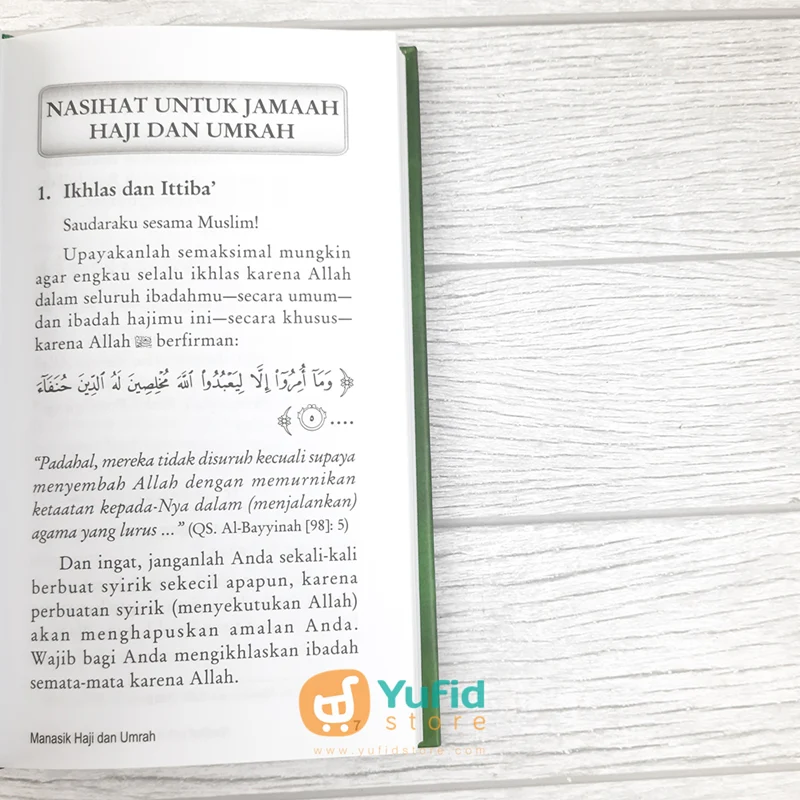 NASIHAT UNTUK JAMAAH
HAJI DAN UMRAH
1. Ikhlas dan Ittiba’
Saudaraku sesama Muslim!
Upayakanlah semaksimal mungkin
agar engkau selalu ikhlas karena Allah
dalam seluruh ibadahmu—secara umum—
dan ibadah hajimu ini—secara khusus—
karena Allah ﷻ berfirman:
﴿ وَمَآ أُمِرُوٓا۟ إِلَّا لِيَعْبُدُوا۟ ٱللَّهَ مُخْلِصِينَ لَهُ ٱلدِّينَ حُنَفَآءَ
.... ٥ ﴾
“Padahal, mereka tidak disuruh kecuali supaya
menyembah Allah dengan memurnikan
ketaatan kepada-Nya dalam (menjalankan)
agama yang lurus ...” (QS. Al-Bayyinah [98]: 5)
Dan ingat, janganlah Anda sekali-kali
berbuat syirik sekecil apapun, karena
perbuatan syirik (menyekutukan Allah)
akan menghapuskan amalan Anda.
Wajib bagi Anda mengikhlaskan ibadah
semata-mata karena Allah.
Manasik Haji dan Umrah 7
YuFid
store
www.yufidstore.com